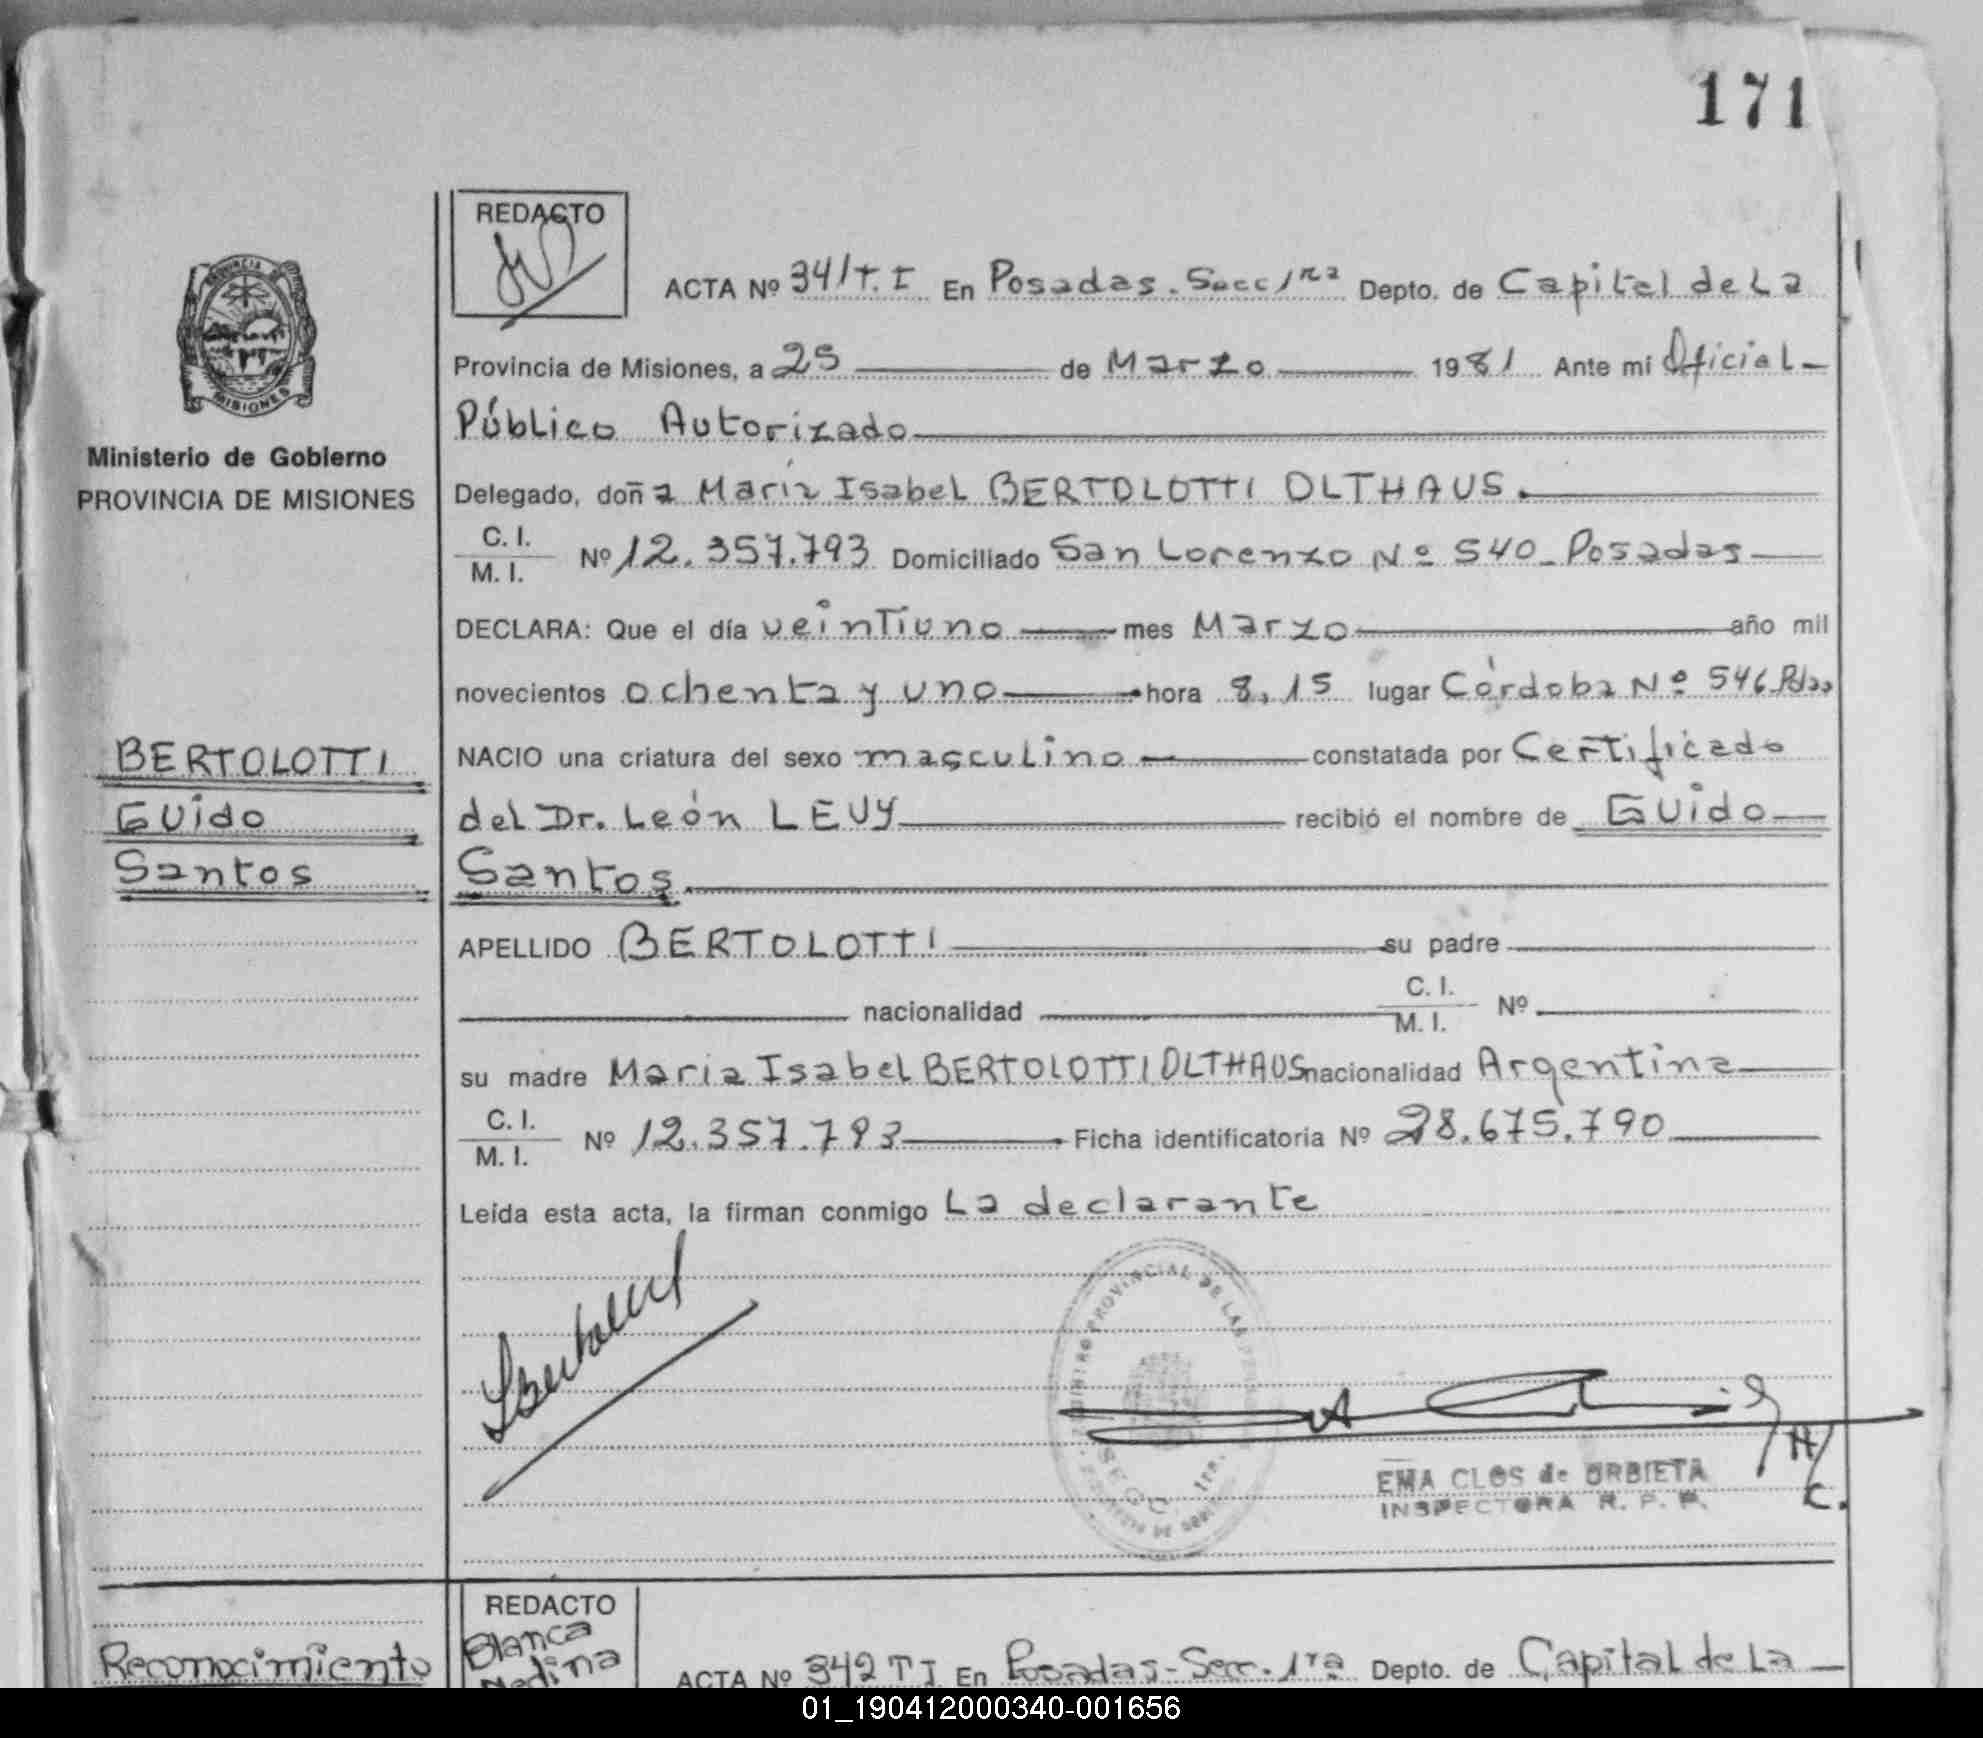 171
REDACTO
PROVINCIA DE
MISIONES
ACTA Nº 341 T. I En Posadas. Secc 1ra Depto. de Capital de La
Provincia de Misiones, a 25 de Marzo 1981 Ante mi Oficial
Público Autorizado
Ministerio de Gobierno
PROVINCIA DE MISIONES
Delegado, doña María Isabel BERTOLOTTI OLTHAUS.
C. I.
M. I. Nº 12.357.793 Domiciliado San Lorenzo Nº 540 - Posadas
DECLARA: Que el día veintiuno mes Marzo año mil
novecientos ochenta y uno hora 8,15 lugar Córdoba Nº 546 Pdas
BERTOLOTTI
Guido
Santos
NACIO una criatura del sexo masculino constatada por Certificado
del Dr. León LEVY recibió el nombre de Guido
Santos
APELLIDO BERTOLOTTI su padre
nacionalidad C. I.
M. I. Nº
su madre Maria Isabel BERTOLOTTI OLTHAUS nacionalidad Argentina
C. I.
M. I. Nº 12.357.793 Ficha identificatoria Nº 28.675.790
Leída esta acta, la firman conmigo La declarante
PROVINCIAL DE LAS
SECC. 1RA.
EMA CLOS de URBIETA
INSPECTORA R. P. P.
Reconocimiento
REDACTO
Blanca
Medina
ACTA Nº 342 T I En Posadas - Secc. 1ra Depto. de Capital de La
01_190412000340-001656